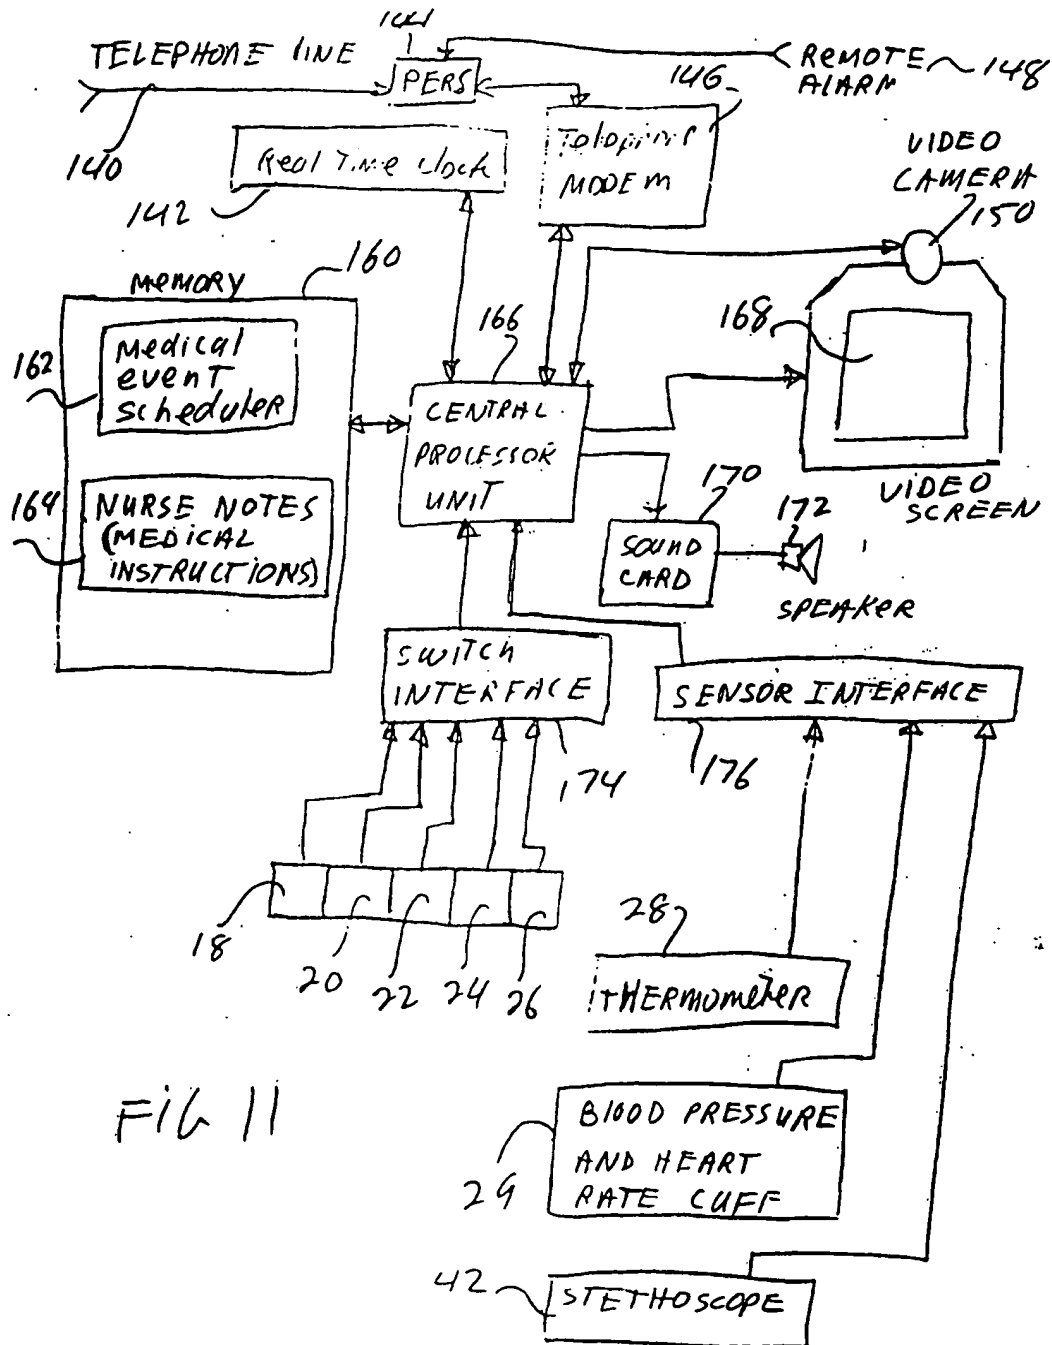 144
TELEPHONE LINE
PERS
REMOTE
ALARM
148
146
140
Real Time Clock
142
MODEM
VIDEO
CAMERA
150
MEMORY
160
166
168
162
Medical
event
scheduler
CENTRAL
PROCESSOR
UNIT
164
NURSE NOTES
(MEDICAL
INSTRUCTIONS)
170
172
VIDEO
SCREEN
SOUND
CARD
SPEAKER
SWITCH
INTERFACE
SENSOR INTERFACE
174
176
18
20
22
24
26
28
THERMOMETER
FIG 11
BLOOD PRESSURE
AND HEART
RATE CUFF
29
42
STETHOSCOPE